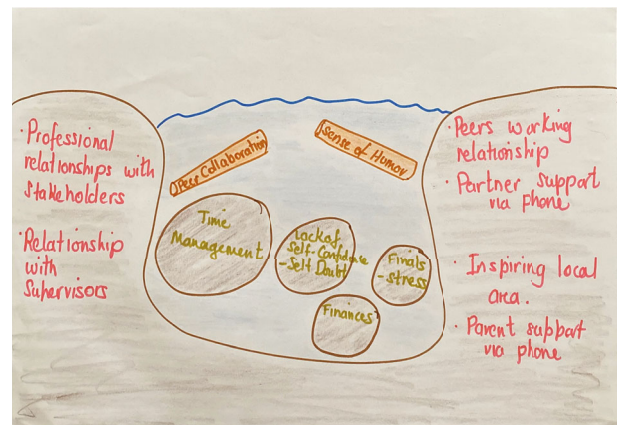 · Professional
relationships with
Stakeholders
· Relationship
with
Supervisors
Peer Collaboration
Sense of Humor
Time
Management
Lack of
Self-Confidence
-Self Doubt
Finals
-stress
Finances
· Peers working
relationship
· Partner support
via phone
· Inspiring local
area.
· Parent support
via phone